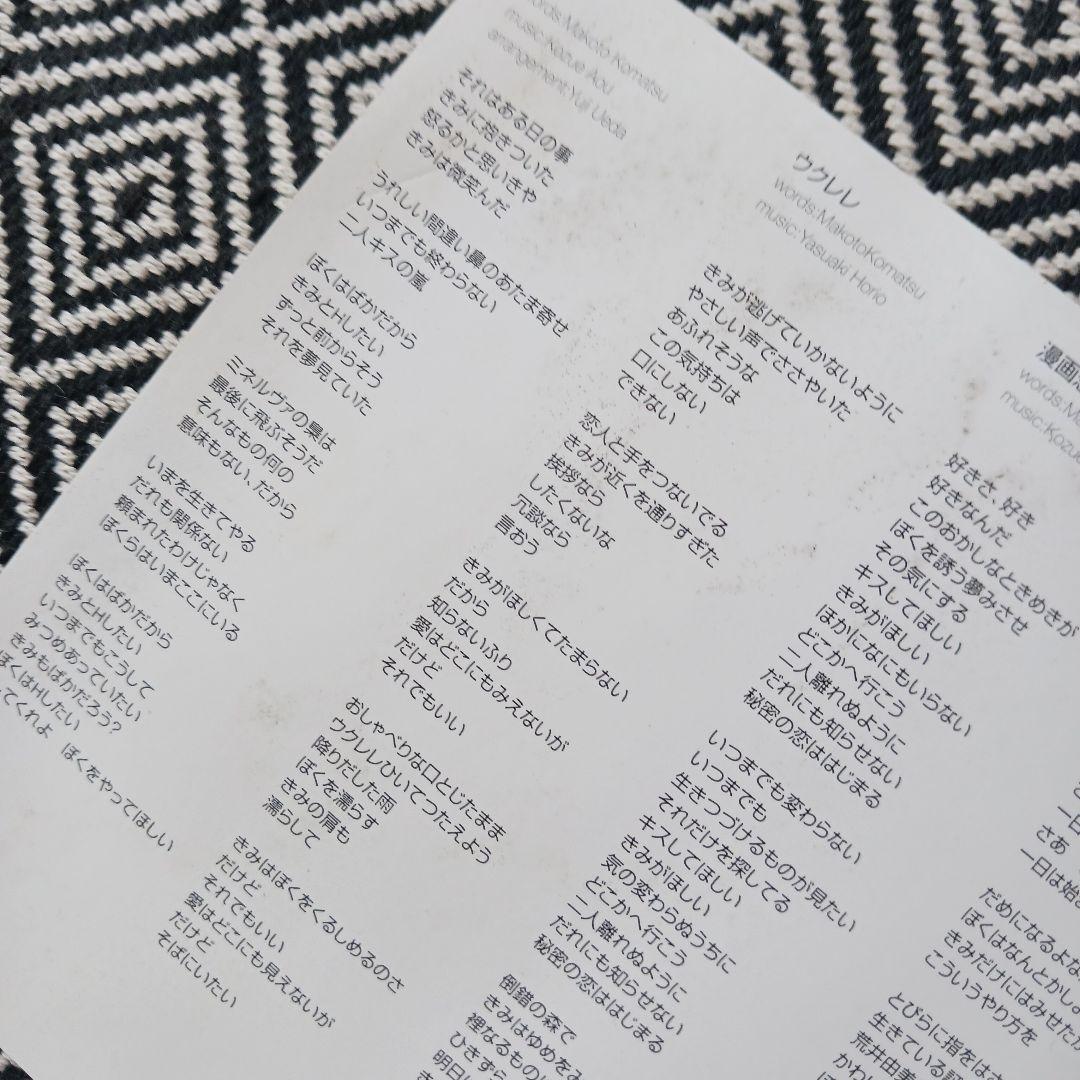 words:Makoto Komatsu
music:Kozue Aou
arrangement:Yuji Ueda
それはある日の事
きみに抱きついた
怒るかと思いきや
きみは微笑んだ
うれしい間違い鼻のあたま寄せ
いつまでも終わらない
二人キスの嵐
ぼくはばかだから
きみとHしたい
ずっと前からそう
それを夢見ていた
ミネルヴァの梟は
最後に飛ぶそうだ
そんなもの何の
意味もない、だから
いまを生きてやる
だれも関係ない
頼まれたわけじゃなく
ぼくらはいまここにいる
ぼくはばかだから
きみとHしたい
いつまでもこうして
みつめあっていたい
きみもばかだろう?
ぼくはHしたい
てくれよ ぼくをやってほしい
ウクレレ
words:MakotoKomatsu
music:Yasuaki Horio
きみが逃げていかないように
やさしい声でささやいた
あふれそうな
この気持ちは
口にしない
できない
恋人と手をつないでる
きみが近くを通りすぎた
挨拶なら
したくないな
冗談なら
言おう
きみがほしくてたまらない
だから
知らないふり
愛はどこにもみえないが
だけど
それでもいい
おしゃべりな口とじたまま
ウクレレひいてつたえよう
降りだした雨
ぼくを濡らす
きみの肩も
濡らして
きみはぼくをくるしめるのさ
だけど
それでもいい
愛はどこにも見えないが
だけど
そばにいたい
漫画
words:Ma
music:Kozu
好きさ、好き
好きなんだ
このおかしなときめきが
ぼくを誘う夢みさせ
その気にする
キスしてほしい
きみがほしい
ほかになにもいらない
どこかへ行こう
二人離れぬように
だれにも知らせない
秘密の恋ははじまる
いつまでも変わらない
いつまでも
生きつづけるものが見たい
それだけを探してる
キスしてほしい
きみがほしい
気の変わらぬうちに
どこかへ行こう
二人離れぬように
だれにも知らせない
秘密の恋ははじまる
倒錯の森で
きみはゆめをみ
裡なるもの
ひきずら
明日
一日
さあ
一日は始
だめになるよな
ぼくはなんとかし
きみだけにはみせたか
こういうやり方を
とびらに指をは
生きている
荒井由美
かわ